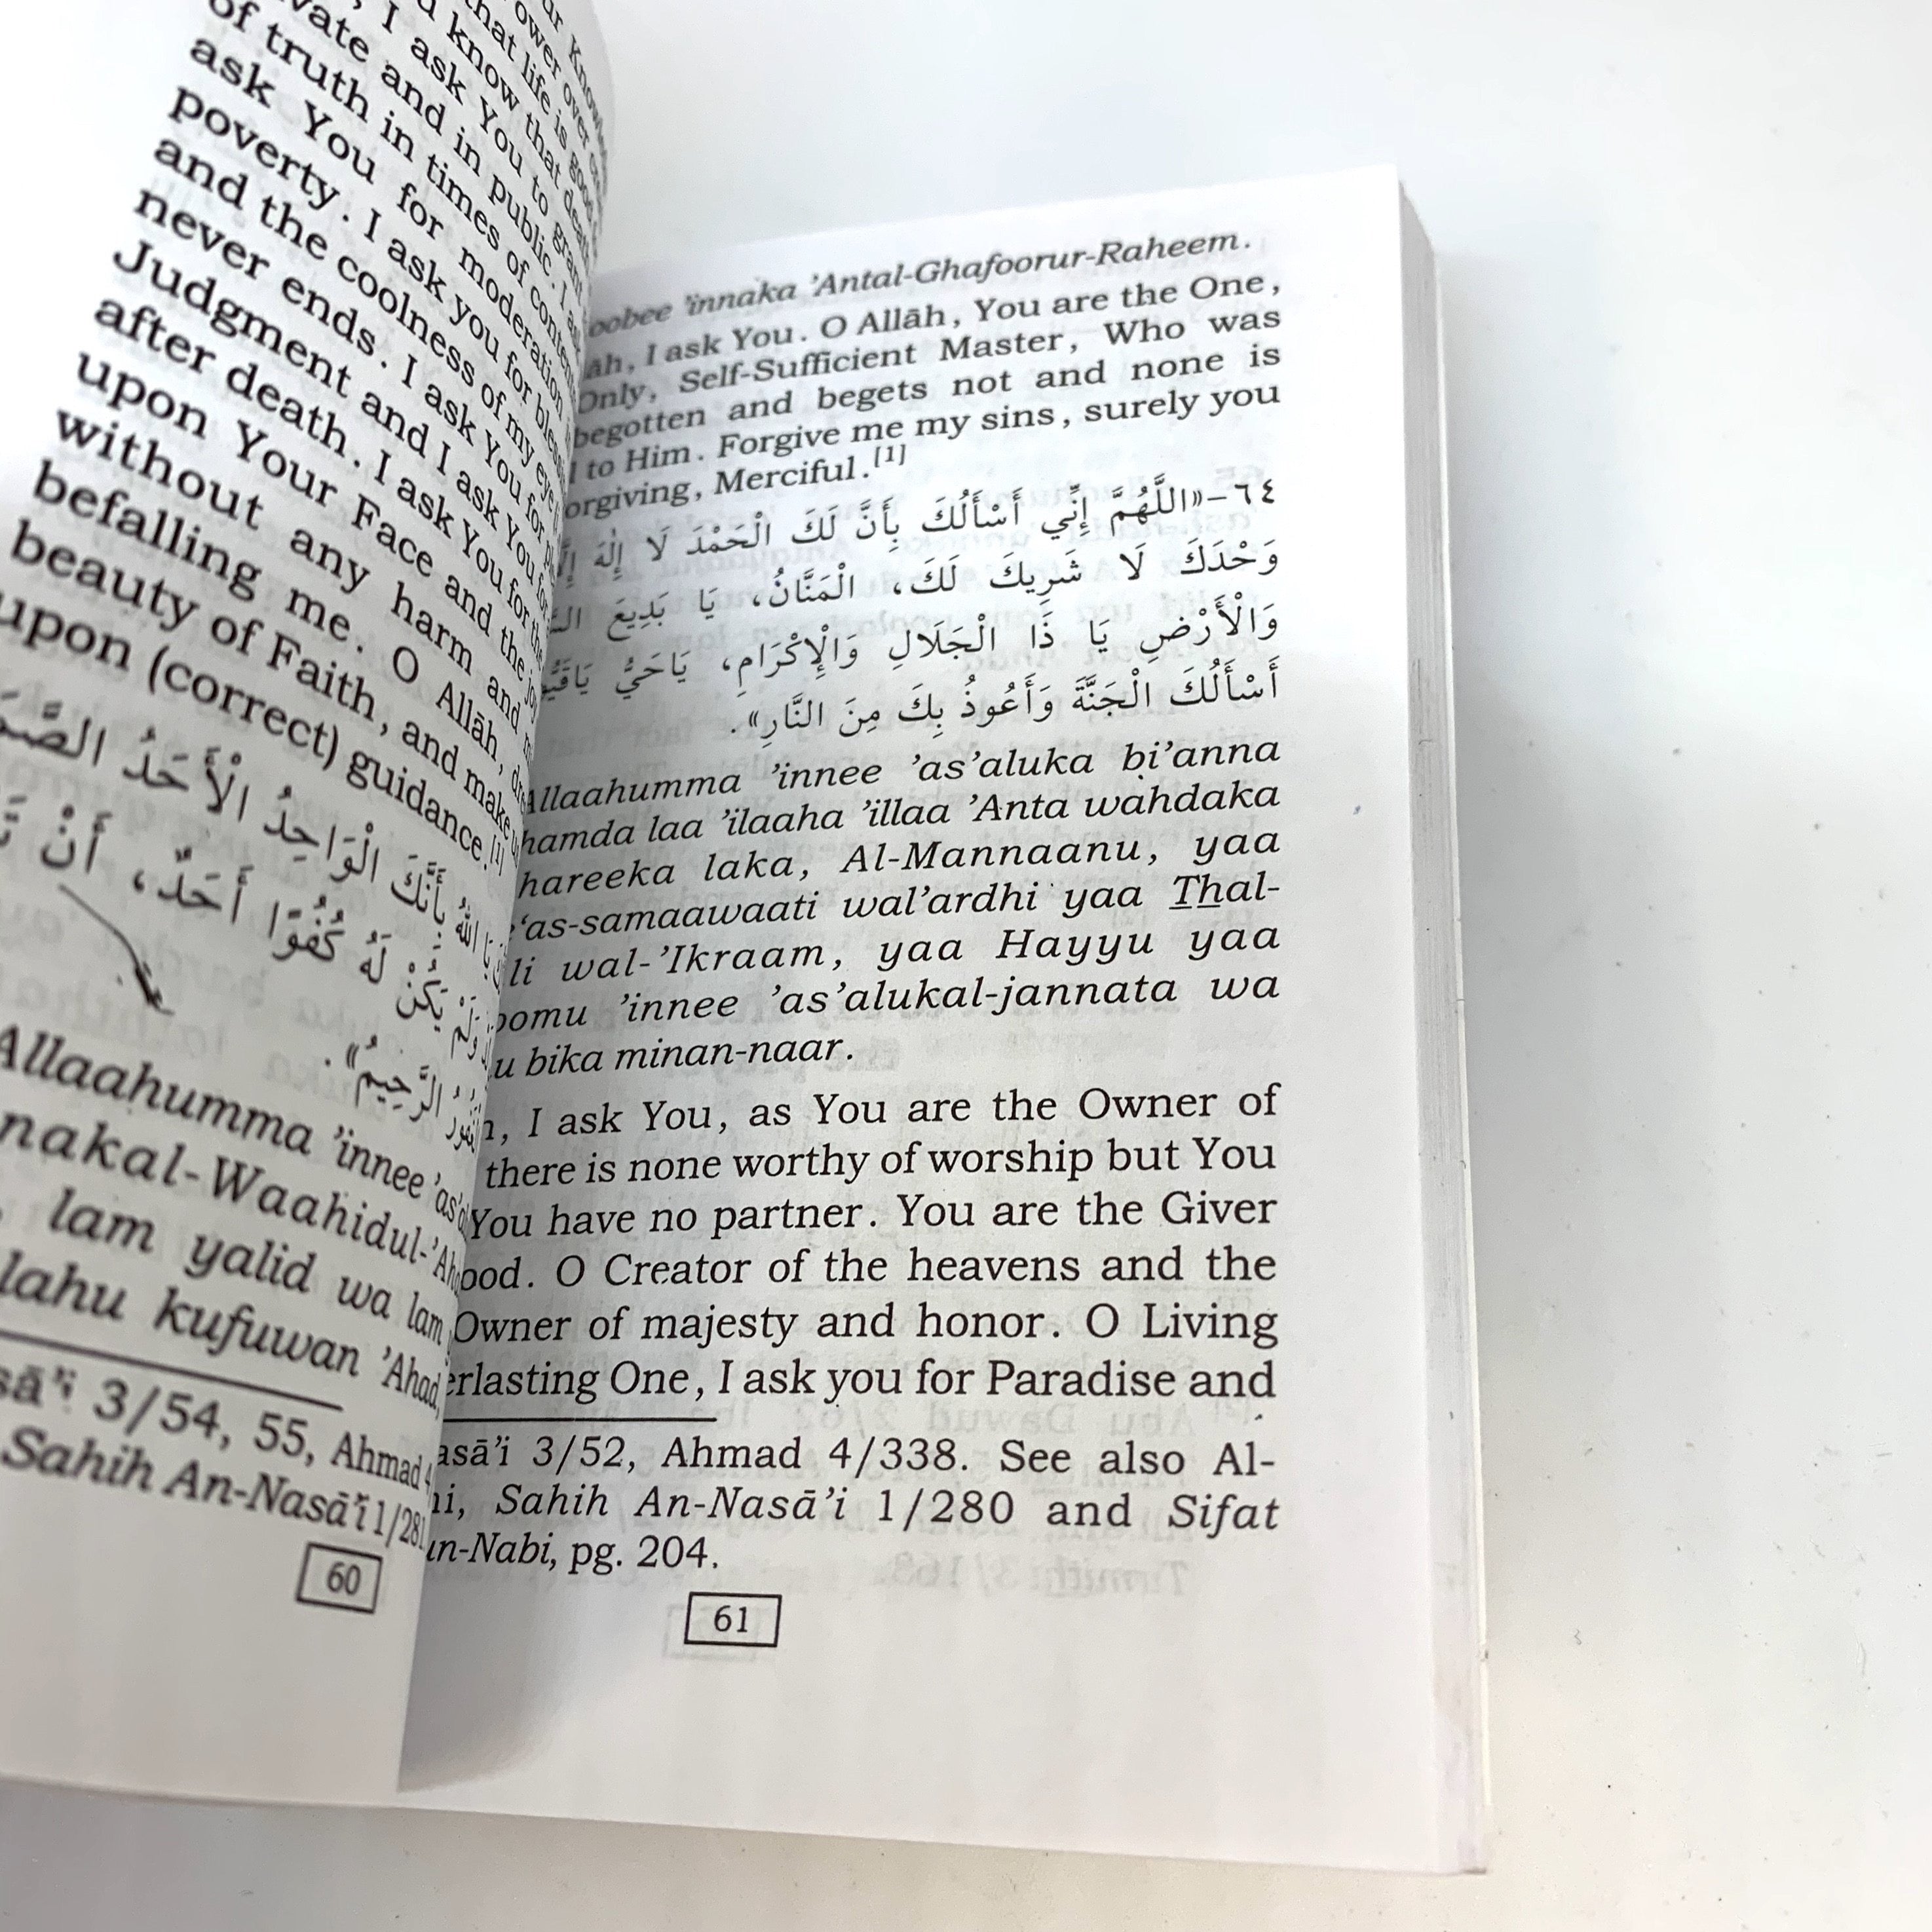 ur Know
ower over
that life is good
u know that death
, I ask You to grant
vate and in public. I as
of truth in times of content
ask You for moderation
poverty. I ask you for bless
and the coolness of my eye
never ends. I ask You for pl
Judgment and I ask You for
after death. I ask You for the
upon Your Face and the joy
without any harm and
befalling me. O Allāh,
beauty of Faith, and make u
upon (correct) guidance.[1]
يَا اللهُ بِأَنَّكَ الْوَاحِدُ الْأَحَدُ
وَلَمْ يَكُنْ لَهُ كُفُوًا أَحَدٌ، أَنْ
الرَّحِيمُ».
Allaahumma ’innee ’as’a
nakal-Waahidul-’Aha
, lam yalid wa lam
lahu kufuwan ’Ahad,
sā’i 3/54, 55, Ahmad 4
Sahih An-Nasā’i 1/281
60
oobee ’innaka ’Antal-Ghafoorur-Raheem.
āh, I ask You. O Allāh, You are the One,
Only, Self-Sufficient Master, Who was
begotten and begets not and none is
l to Him. Forgive me my sins, surely you
orgiving, Merciful.[1]
٦٤–«اللَّهُمَّ إِنِّي أَسْأَلُكَ بِأَنَّ لَكَ الْحَمْدَ لَا إِلٰهَ
وَحْدَكَ لَا شَرِيكَ لَكَ، الْمَنَّانُ، يَا بَدِيعَ
وَالْأَرْضِ يَا ذَا الْجَلَالِ وَالْإِكْرَامِ، يَاحَيُّ
أَسْأَلُكَ الْجَنَّةَ وَأَعُوذُ بِكَ مِنَ النَّارِ».
Allaahumma ’innee ’as’aluka bi’anna
hamda laa ’ilaaha ’illaa ’Anta wahdaka
hareeka laka, Al-Mannaanu, yaa
‘as-samaawaati wal’ardhi yaa Thal-
li wal-’Ikraam, yaa Hayyu yaa
oomu ’innee ’as’alukal-jannata wa
u bika minan-naar.
, I ask You, as You are the Owner of
there is none worthy of worship but You
You have no partner. You are the Giver
ood. O Creator of the heavens and the
Owner of majesty and honor. O Living
erlasting One, I ask you for Paradise and
asā’i 3/52, Ahmad 4/338. See also Al-
ni, Sahih An-Nasā’i 1/280 and Sifat
un-Nabi, pg. 204.
61